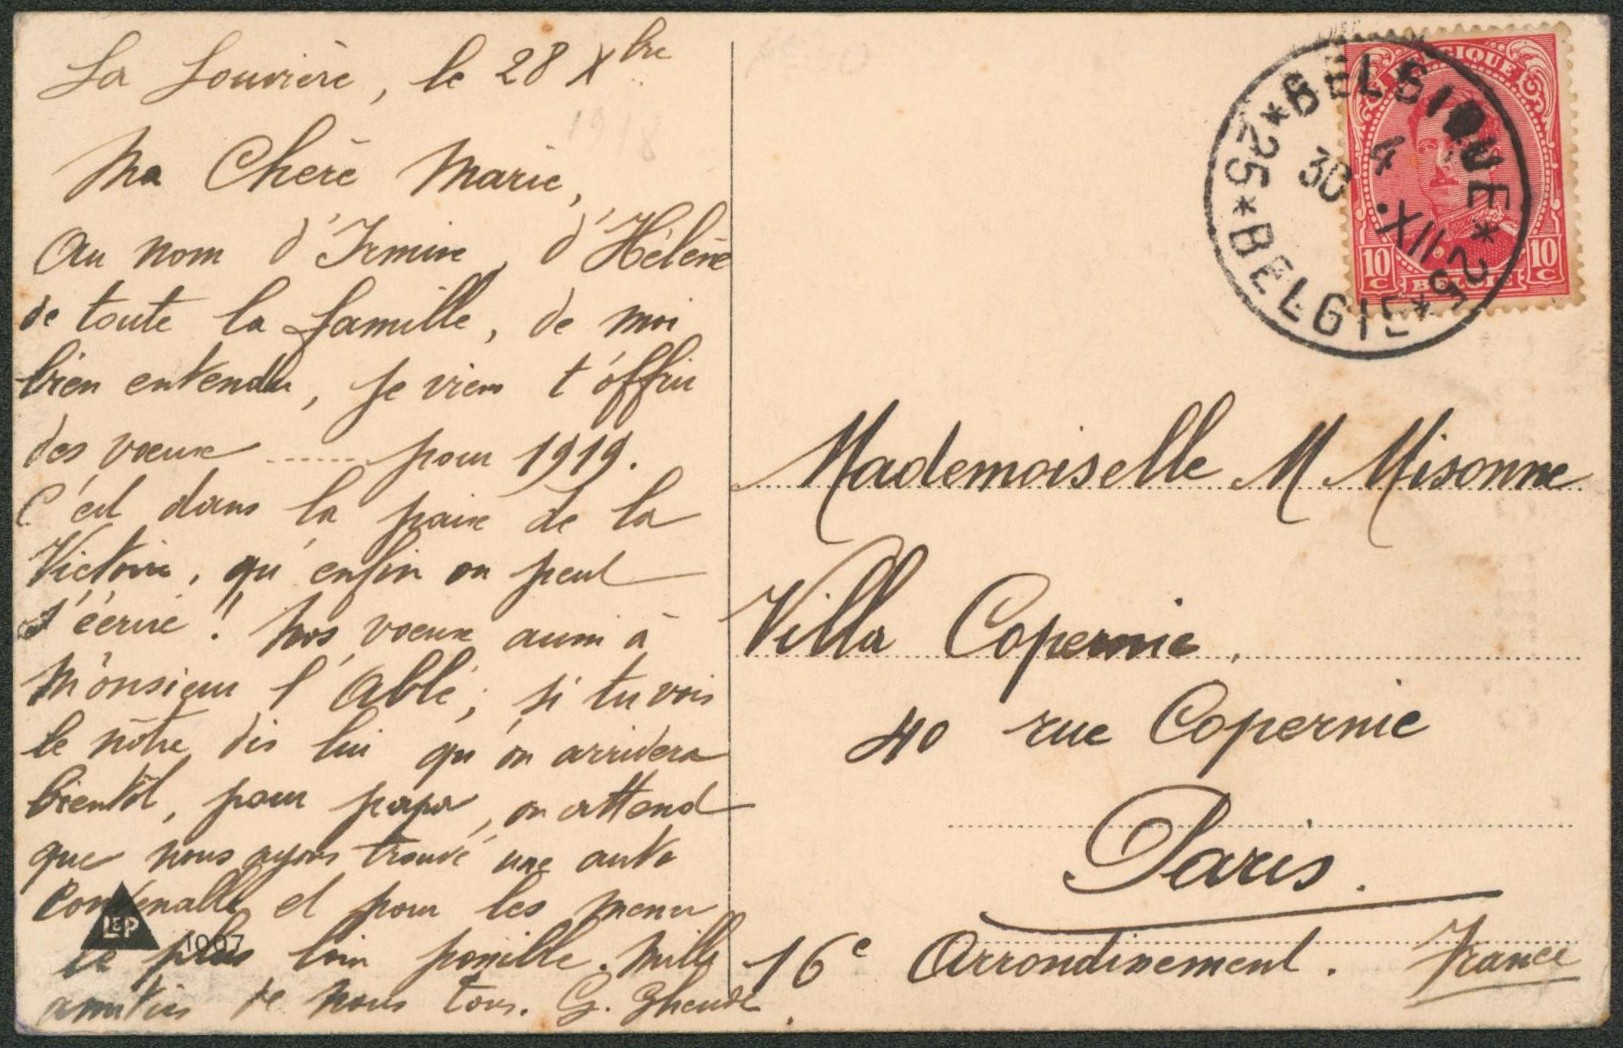 La Louvière, le 28 Xbre
1918
Ma Chère Marie,
Au nom d'Irmine, d'Hélène
de toute la famille, de moi
bien entendu, je viens t'offrir
des voeux ...... pour 1919.
C'est dans la paix de la
Victoire, qu'enfin on peut
s'écrire! Nos voeux aussi à
Monsieur l'Abbé; si tu vois
le nôtre, dis lui qu'on arrivera
bientôt, pour papa, on attend
que nous ayons trouvé une auto
convenable et pour les mener
le plus loin possible. Mille
amitiés de nous tous. G. Gheude
LEP
1007
*BELGIQUE*
*25*BELGIE*25
4
30 .XII
BELGIQUE
10 C
10 C
BELGIË
Mademoiselle M Misonne
Villa Copernic,
40 rue Copernic
Paris.
16e Arrondissement. France